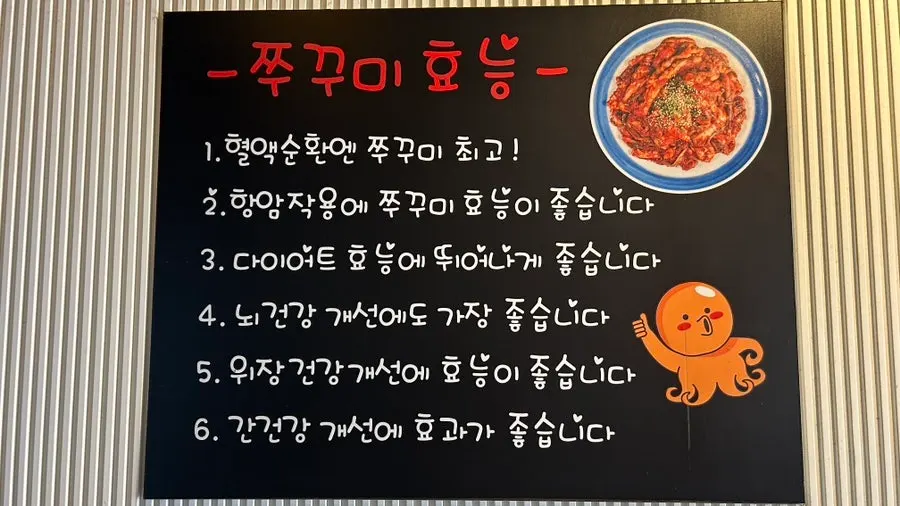 - 쭈꾸미 효능 -
1. 혈액순환엔 쭈꾸미 최고!
2. 항암작용에 쭈꾸미 효능이 좋습니다
3. 다이어트 효능에 뛰어나게 좋습니다
4. 뇌건강 개선에도 가장 좋습니다
5. 위장건강개선에 효능이 좋습니다
6. 간건강 개선에 효과가 좋습니다